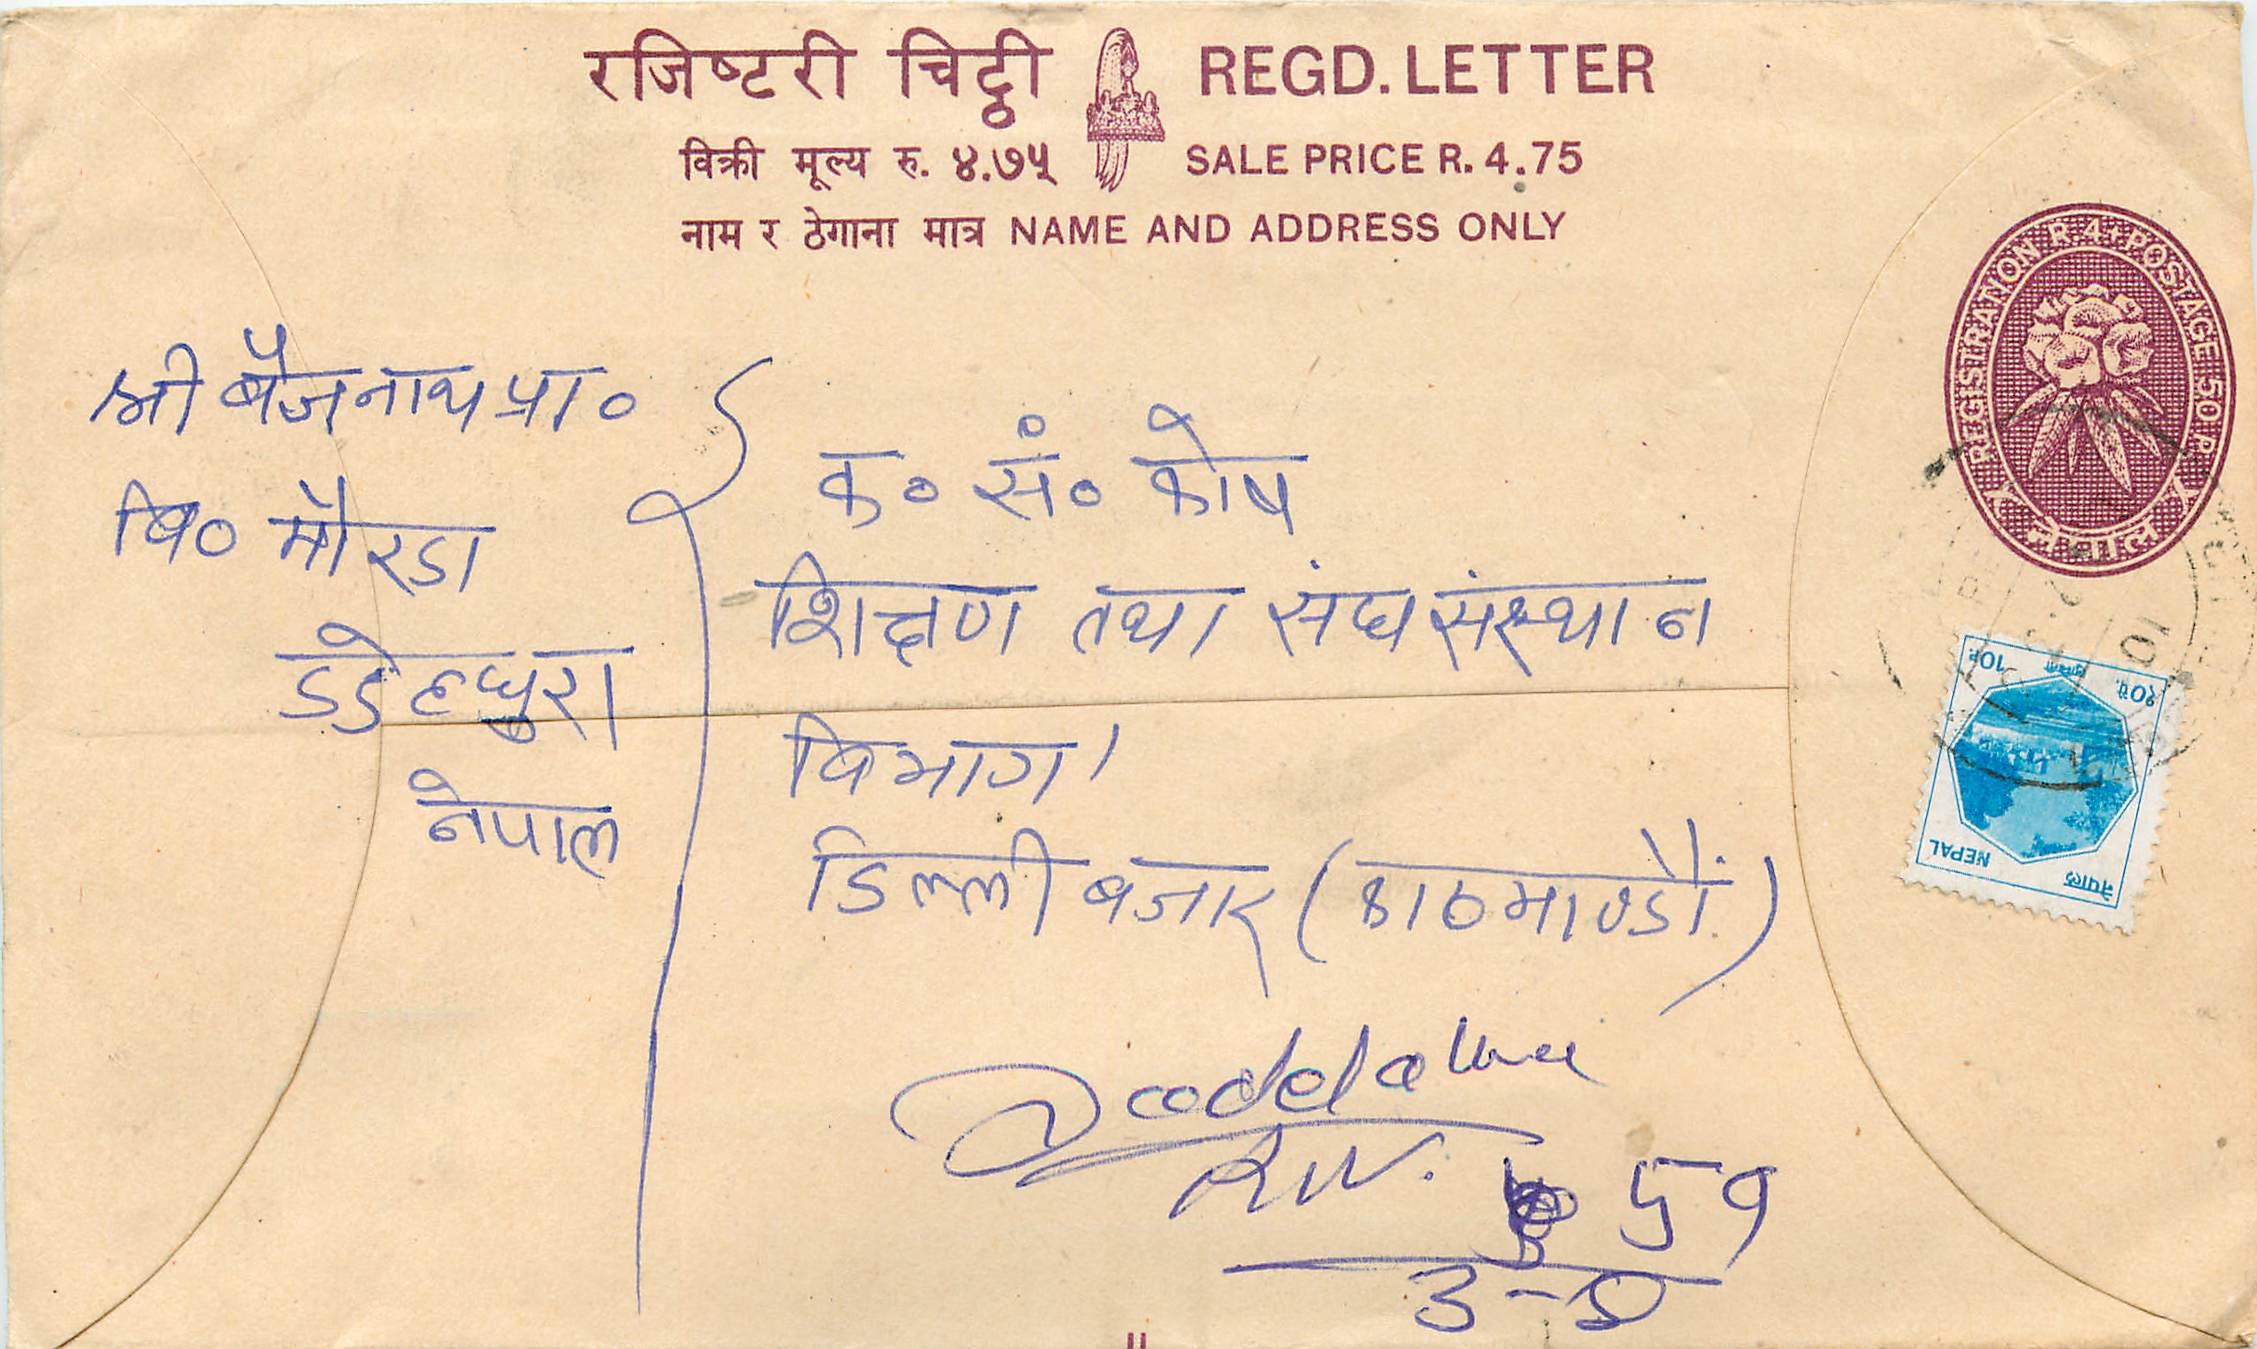 रजिष्टरी चिट्ठी REGD. LETTER
विक्री मूल्य रु. ४.७५ SALE PRICE R. 4.75
नाम र ठेगाना मात्र NAME AND ADDRESS ONLY
REGISTRATION R. 4+POSTAGE 50 P.
नेपाल
श्री बैजनाथ प्रा०
बि० मौरडा
डडेलधुरा
नेपाल
क० सं० कोष
शिक्षण तथा संघ संस्थान
बिभाग।
डिल्ली बजार (काठमाण्डौं)
१० पै. 10P
NEPAL नेपाल
59